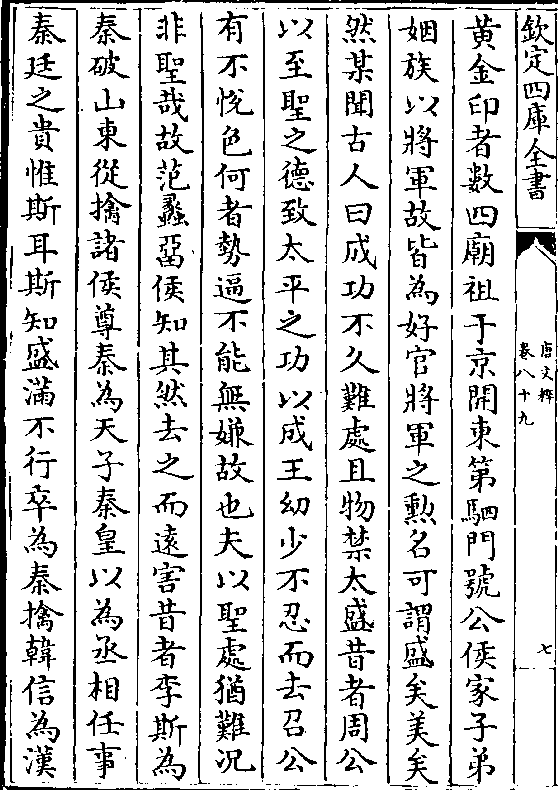 欽定四庫全書
唐文粹
卷八十九
七
黃金印者數四廟祖于京開東第駟門號公侯家子弟
姻族以將軍故皆為好官將軍之勲名可謂盛矣美矣
然某聞古人曰成功不久難處且物禁太盛昔者周公
以至聖之德致太平之功以成王幼少不忍而去召公
有不恱色何者勢逼不能無嫌故也夫以聖處猶難况
非聖哉故范蠡畱侯知其然去之而逺害昔者李斯為
秦破山東從擒諸侯尊秦為天子秦皇以為丞相任事
秦廷之貴惟斯耳斯知盛滿不行卒為秦擒韓信為漢